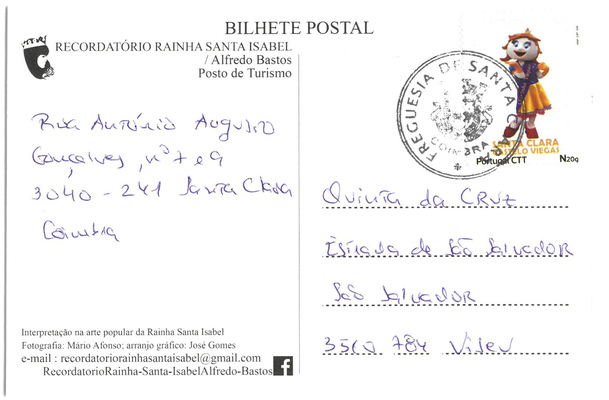 BILHETE POSTAL
RECORDATÓRIO RAINHA SANTA ISABEL
/ Alfredo Bastos
Posto de Turismo
Rua António Augusto
Gonçalves, nº 7 e 9
3040 - 241 Santa Clara
Coimbra
Interpretação na arte popular da Rainha Santa Isabel
Fotografia: Mário Afonso; arranjo gráfico: José Gomes
e-mail : recordatoriorainhasantaisabel@gmail.com
RecordatorioRainha-Santa-IsabelAlfredo-Bastos
FREGUESIA DE SANTA CLARA
COIMBRA
SANTA CLARA
CASTELO VIEGAS
Portugal CTT N20g
Quinta da Cruz
Estrada de São Salvador
São Salvador
3510 784 Viseu